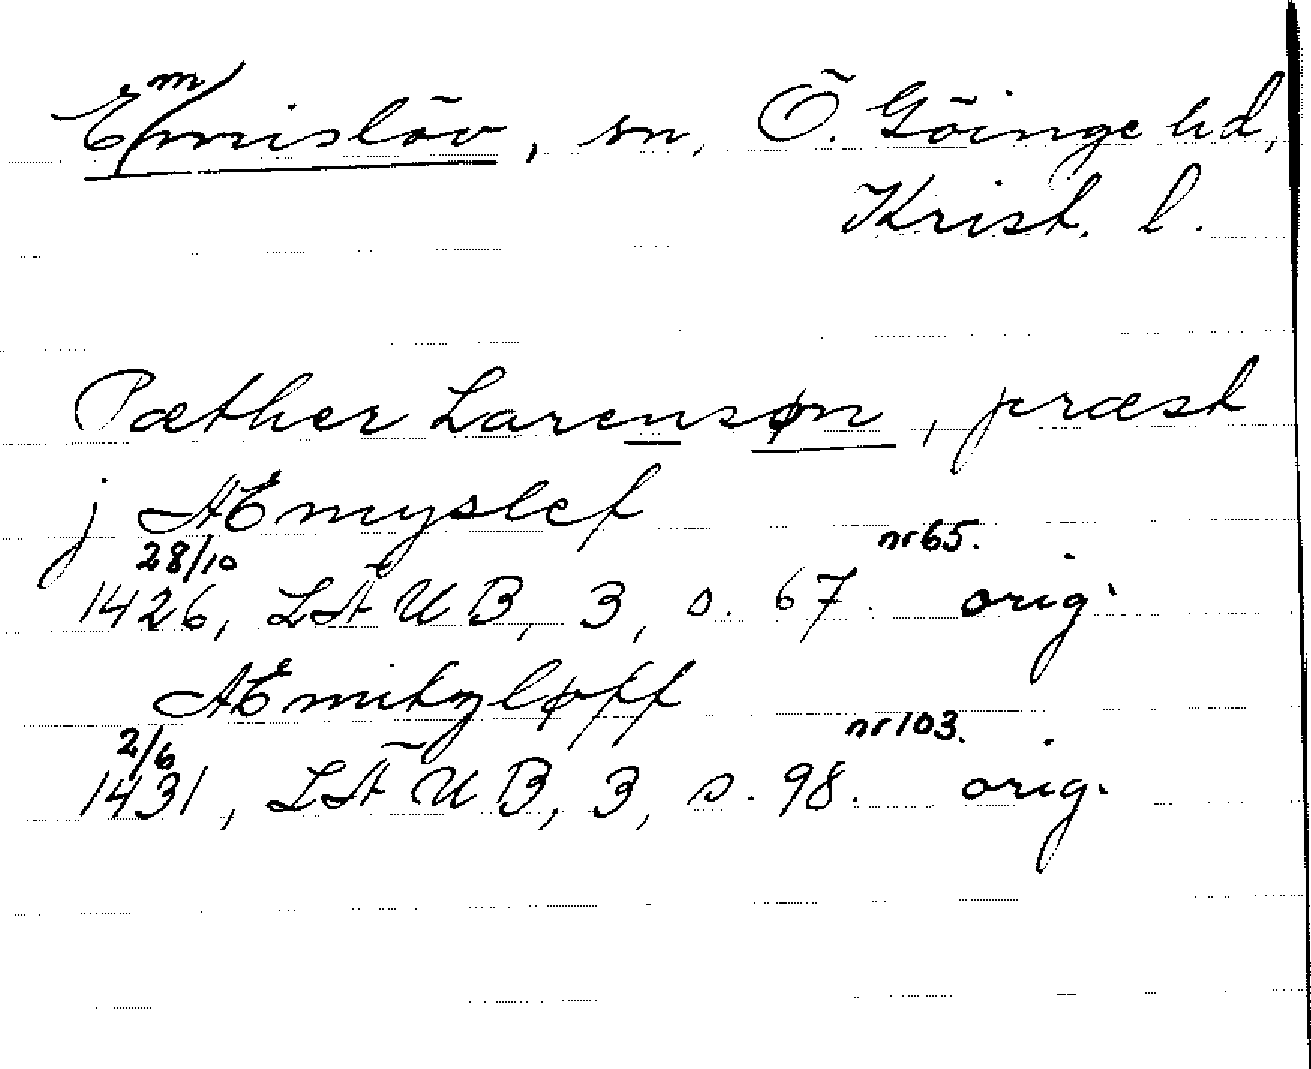 Emmislöv, sn, Ö. Göinge hd,
Krist. l.
Pæther Larensøn, præst
j Æmyslef
28/10 nr 65.
1426, LÄUB, 3, s. 67. orig.
Æmitzløff
2/6 nr 103.
1431, LÄUB, 3, s. 98. orig.